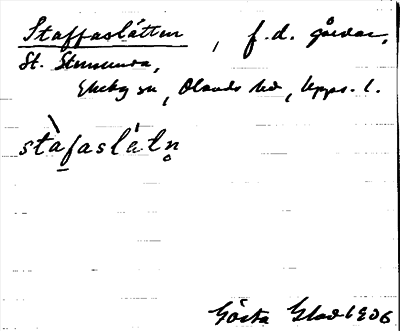 Staffaslätten, f.d. gårdar,
St. Stimmunda,
Ekeby sn, Olands hd, Upps. l.
stàfaslátn̥
Gösta Glad 1906